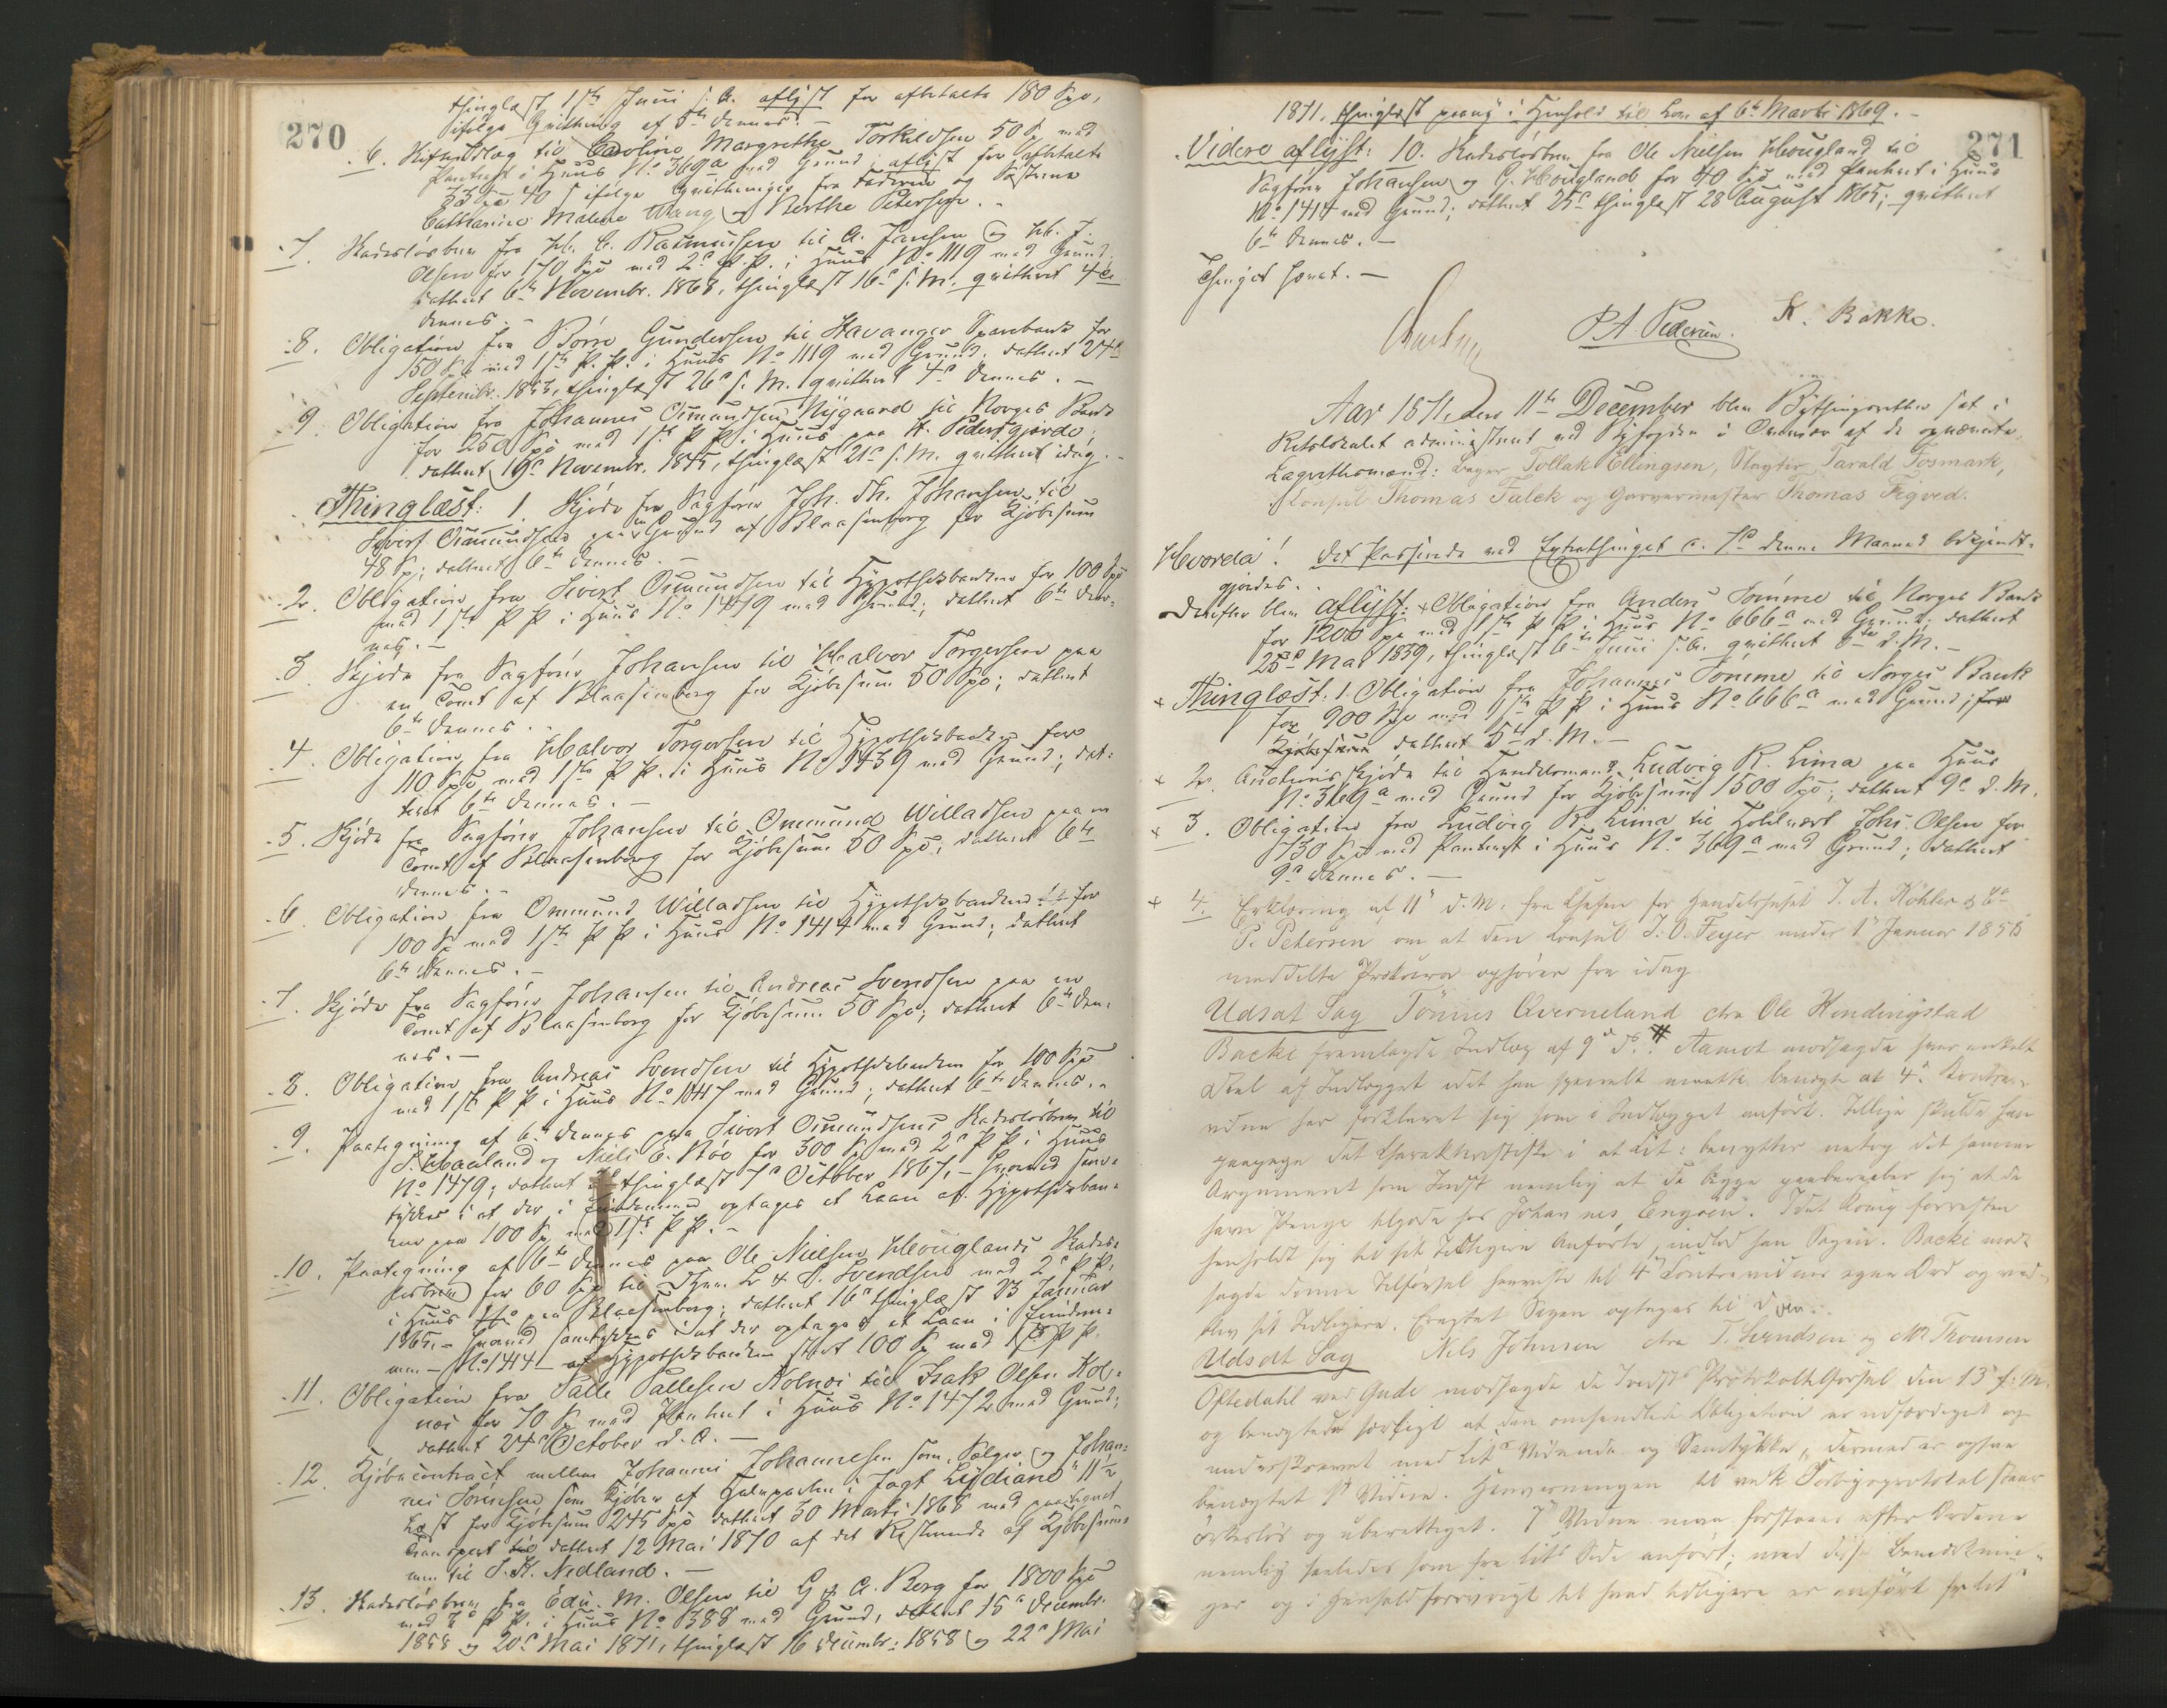 270
thinglæst 1ste Juni s. A. aflyst for afbetalte 180 Spd,
ifølge Qvittering af 5te dennes. –
6. Skifteudlæg til Caroline Margrethe Torkildsen 50 Sp med
Panteret i Huus No 369a med Grund; aflyst for afbetalte
33 Sp 40 s ifølge Qvitteringer fra Faderen og Søstrene
Cathrine Malene Wang og Berthe Petersen. –
7. Skadesløsbrev fra Chr. C. Rasmussen til A. Jansen og Chr. F.
Olsen for 170 Spd med 2d P. Pr. i Huus No 1119 med Grund,
dateret 6te Novembr. 1868, thinglæst 16d s. M. qvitteret 4de
dennes. –
8. Obligation fra Børre Gundersen til Stavanger Sparebank for
150 Sp med 1ste P. Pr. i Huus No 1119 med Grund, dateret 24d
Septembr. 1853, thinglæst 26d s. M. qvitteret 4d dennes. –
9. Obligation fra Johannes Osmundsen Nygaard til Norges Bank
for 250 Spd med 1ste P. Pr. i Huus paa St. Pedersgjerde;
dateret 19d Novembr. 1845, thinglæst 21d s. M. qvitteret idag. –
Thinglæst: 1. Skjøde fra Sagfører Joh. Th. Johansen til
Sivert Osmundsen paa en Grund af Blaasenborg for Kjøbesum
48 Sp; dateret 6te dennes. –
2. Obligation fra Sivert Osmundsen til Hypothekbanken for 100 Spd
med 1ste P. Pr. i Huus No 1479 med Grund; dateret 6te den-
nes. –
3. Skjøde fra Sagfører Johansen til Halvor Torgersen paa
en Tomt af Blaasenborg for Kjøbesum 50 Spd; dateret
6te dennes.
4. Obligation fra Halvor Torgersen til Hypothekbanken for
110 Spd med 1ste P. Pr. i Huus No 1439 med Grund; dat-
teret 6te dennes. –
5. Skjøde fra Sagfører Johansen til Ommund Willadsen paa en
Tomt af Blaasenborg for Kjøbesum 50 Spd; dateret 6te
dennes. –
6. Obligation fra Ommund Willadsen til Hypothekbanken for
100 Sp med 1ste P. Pr. i Huus No 1414 med Grund; dateret
6te dennes. –
7. Skjøde fra Sagfører Johansen til Andreas Svendsen paa en
Tomt af Blaasenborg for Kjøbesum 50 Spd; dateret 6te den-
nes. –
8. Obligation fra Andreas Svendsen til Hypothekbanken for 100 Spd
med 1ste P. Pr. i Huus No 1447 med Grund; dateret 6te dennes. –
9. Paategning af 6te dennes paa Sivert Osmundsens Skadesløsbrev til
S. Haaland og Niels E. Støe for 300 Sp med 2d P. Pr. i Huus
No 1479; dateret thinglæst 7d October 1867, – hvorved sam-
tykkes i at der i Eiendommen optages et Laan af Hypothekban-
ken paa 100 Sp med 1ste P. Pr. –
10. Paategning af 6te dennes paa Ole Nielsen Houglands Skades-
løsbrev for 60 Spd til Svendsen med 2d P. Pr.
i Huus paa Blaasenborg; dateret 16d thinglæst 23 Januar
1865, – hvorved samtykkes i at der optages et Laan i Eiendom-
men – No 1414 – af Hypothekbanken stort 100 Sp med 1ste P. Pr.
11. Obligation fra Salle Sallesen Kolnæs til Isak Olsen Kol-
næs for 70 Sp med Panteret i Huus No 1472 med Grund;
dateret 24d October d. A. –
12. Kjøbecontract mellem Johannes Johannesen som Sælger og Johan-
nes Sørensen som Kjøber af Halvparten i Jagt "Lydiane" 11½
Læst for Kjøbesum 245 Spd dateret 30 Marts 1868 med paategnet
Transport dateret 12 Mai 1870 af det Resterende af Kjøbesum-
men til S. K. Nedland. –
13. Skadesløsbrev fra Edv. M. Olsen til G. A. Berg for 1800 Spd
med P. Pr. i Huus No 388 med Grund, dateret 15d Decembr.
1858 og 20d Mai 1871, thinglæst 16 Decembr. 1858 og 22d Mai
271
1871, thinglæst paany i Henhold til Lov af 6te Marts 1869. –
Videre aflyst: 10. Skadesløsbrev fra Ole Nielsen Hougland til
Sagfører Johansen og G. Hougland for 40 Spd med Panteret i Huus
No 1414 med Grund; dateret 25d thinglæst 28 August 1865; qvitteret
6te dennes. –
Thinget hævet. –
P A Pedersen. K. Bakke.
Aar 1871, den 11te December blev Bythingsretten sat i
Retslokalet administreret ved Byfogden i Overvær af de opnævnte
Lagrettesmænd: Bager Tollak Ellingsen, Slagter Tarald Fosmark,
Konsul Thomas Falck og Garvermester Thomas Figved.
Hvorda! det Passerede ved Extrathinget d. 7de denne Maaned bekjendt-
gjordes.
Derefter blev aflyst: Obligation fra Anders Sømme til Norges Bank
for 1200 Sp med 1ste P. Pr. i Huus No 666a med Grund; dateret
25d Mai 1839, thinglæst 6te Juni s. A. qvitteret 6te d. M. –
Thinglæst: 1. Obligation fra Johannes Sømme til Norges Bank
for 900 Spd med 1ste P. Pr. i Huus No 666a med Grund; for
Kjøbesum dateret 5te d. M. –
2. Auctions Skjøde til Handelsmand Ludvig R. Lima paa Huus
No 369a med Grund for Kjøbesum 1500 Spd, dateret 9d d. M.
3. Obligation fra Ludvig R. Lima til Holdvært Johs. Olsen for
730 Spd med Panteret i Huus No 369a med Grund; dateret
9d dennes. –
4. Erklæring af 11te d. M. fra Chefen for Handelshuset J. A. Köhler & Co
P. Petersen om at den Konsul J. O. Feyer under 1 Januar 1856
meddelte Prokura ophører fra idag
Udsat Sag Tönnes Qverneland ctra Ole Hindingstad
Backe fremlagde Indlæg af 9d ds. Aamot modsagde hver enkelt
Deel af Indlægget idet han specielt maatte benegte at 4de Kontra-
vidne har forklaret sig som i Indlægget anført. Tillige skulde han
paapege det Charakteristiske i at Cit: benytter netop det samme
Argument som Indst. nemlig at de begge paaberaaber sig at de
have Penge tilgode hos Johannes Engøen. Idet han forresten
henholdt sig til sit Tidligere Anførte, indlod han Sagen. Backe mod-
sagde denne Tilførsel henviste til 4de Contravidnes egne Ord og ved-
blev sit Tidligere. Eragtet Sagen optages til Dom.
Udsat Sag Nils Johnsen ctra T. Svendsen og M. Thomsen
Oftedahl ved Gude modsagde de Indst. Protokoltilførsel den 13de f. M.
og benegtede særlig at den omhandlede Obligation er udfærdiget og
underskrevet med Cits Vidende og Samtykke, dermed er ogsaa
benegtet 1ste Vidne. Henvisningen til Forligsprotokol staar
ørkesløs og uberettiget. 7de Vidne maa forstaaes efter Ordene
nemlig saaledes som fra Cits Side anført; med disse Bemærknin-
ger og i Henhold forøvrigt til hvad tidligere er anført fra Cits